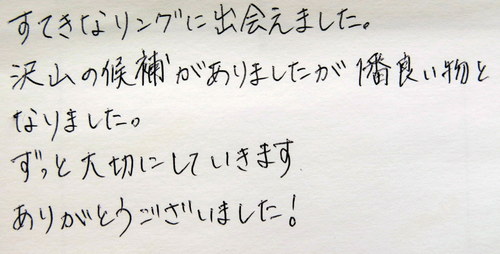 すてきなリングに出会えました。
沢山の候補がありましたが1番良い物と
なりました。
ずっと大切にしていきます
ありがとうございました!